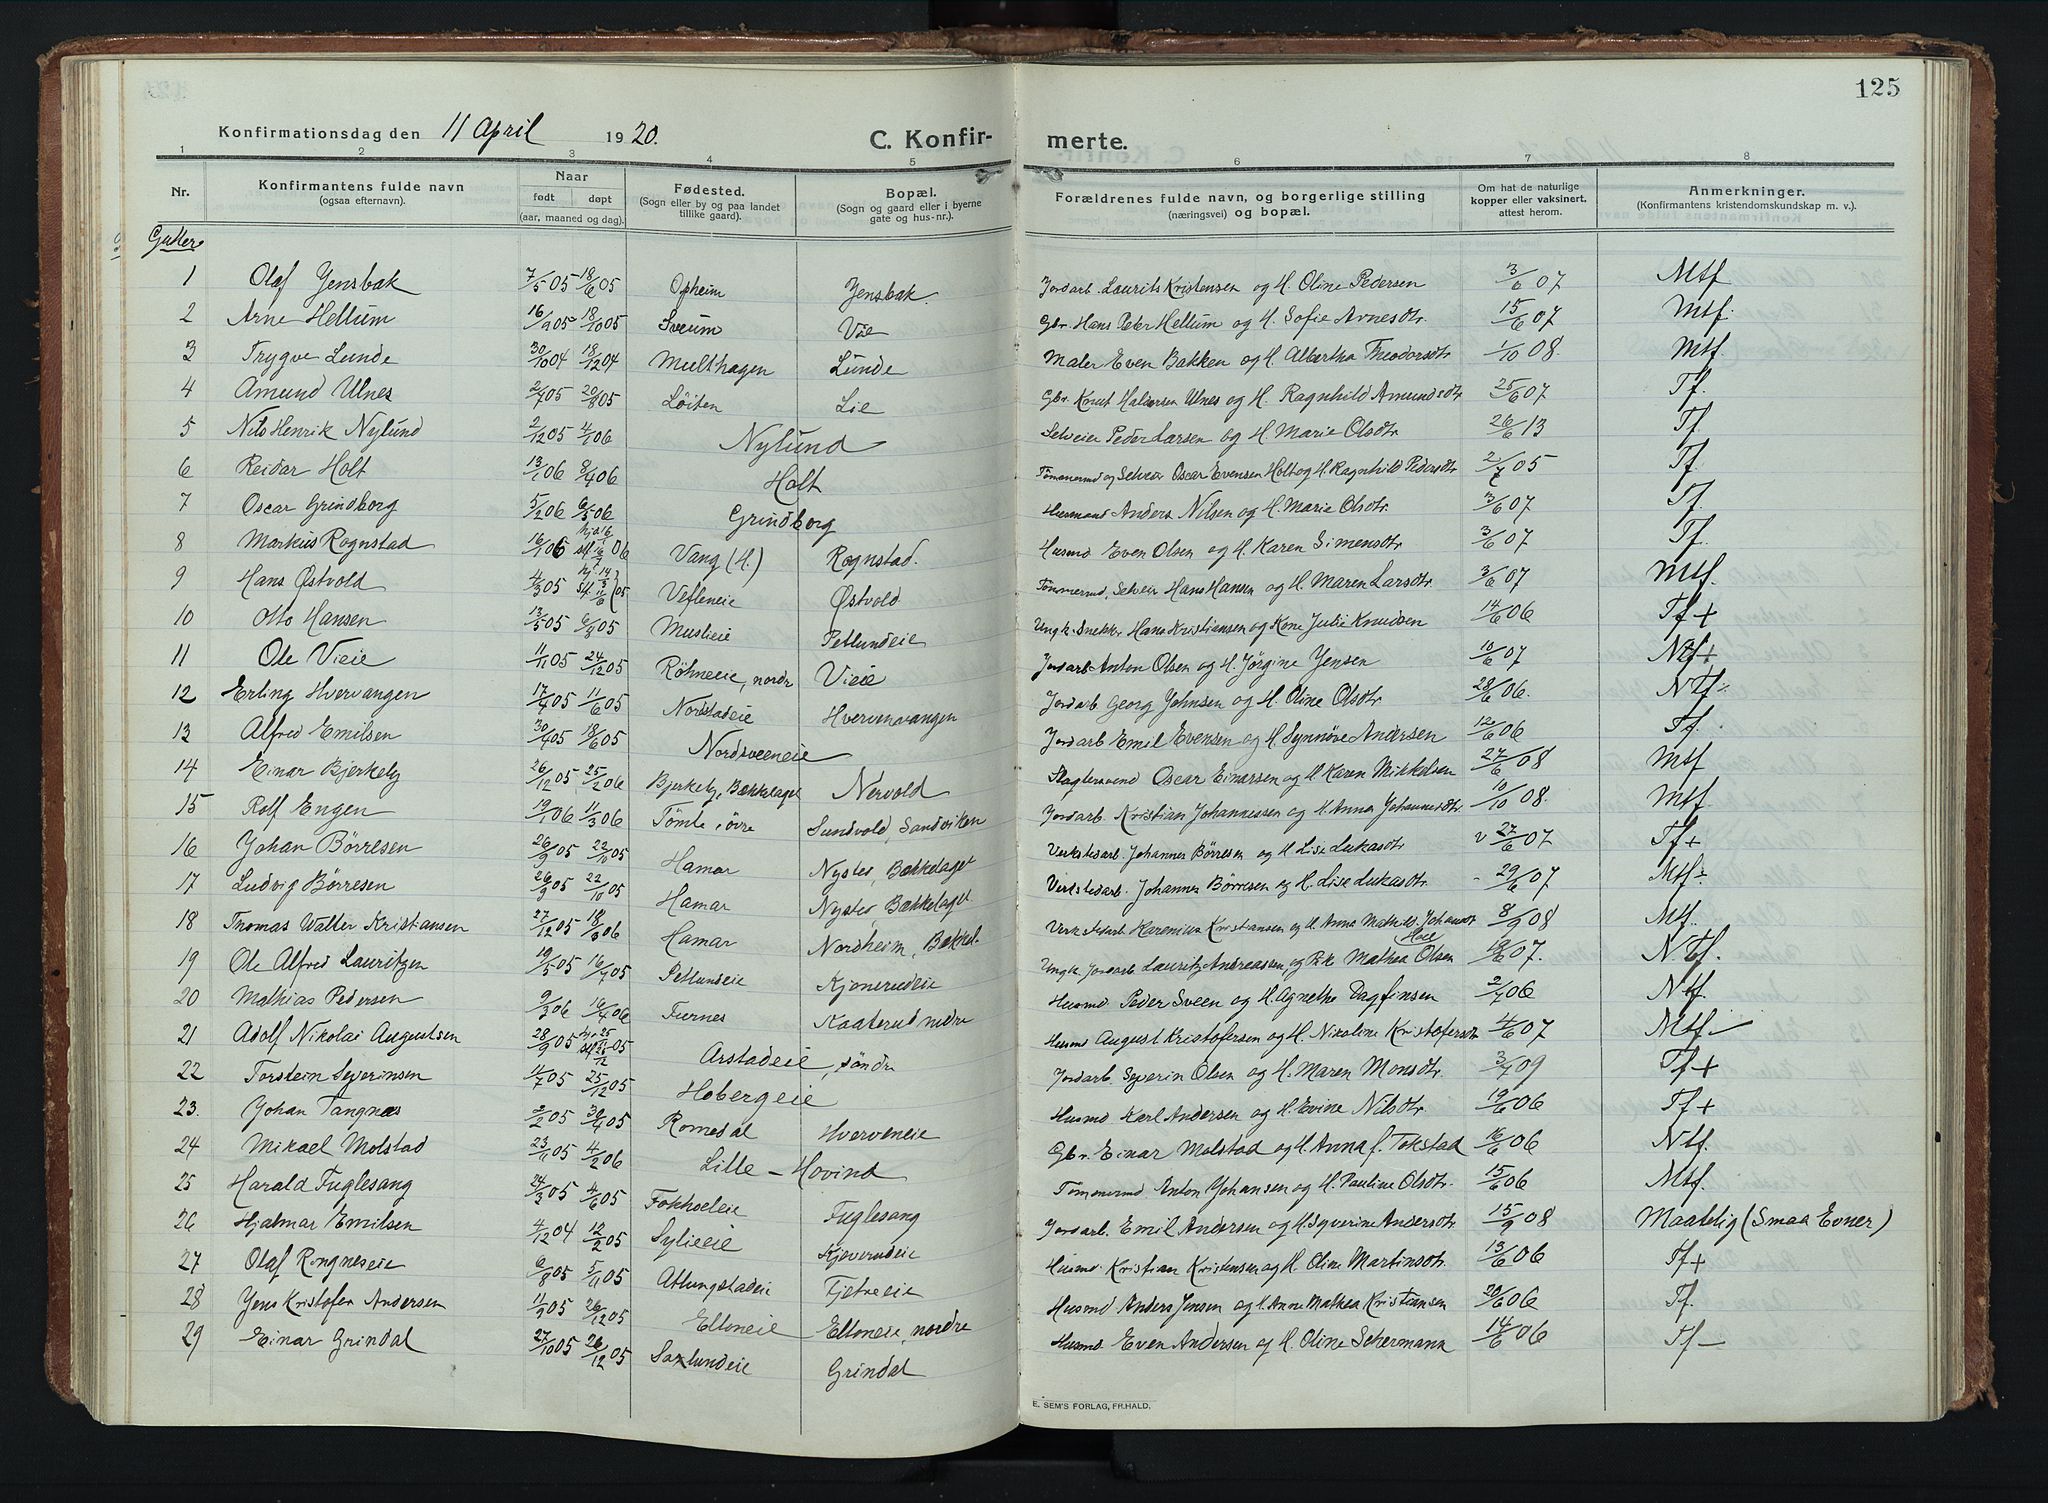 125
Konfirmationsdag den 11 April 1920. C. Konfir- merte.
1 2 3 4 5 6 7 8
Nr. Konfirmantens fulde navn (ogsaa efternavn). Naar født døpt (aar, maaned og dag). Fødested. (Sogn eller by og paa landet tillike gaard). Bopæl. (Sogn og gaard eller i byerne gate og hus-nr.). Forældrenes fulde navn, og borgerlige stilling (næringsvei) og bopæl. Om hat de naturlige kopper eller vaksinert, attest herom. Anmerkninger. (Konfirmantens kristendomskundskap m. v.).
Gutter
1 Olaf Jensbak 7/5 05 18/6 05 Opheim Jensbak. Jordarb. Laurits Kristensen og H. Oline Pedersen 3/6 07 Mtf
2 Arne Hellum 16/9 05 18/10 05 Sveum Vie Gbr. Hans Peter Hellum og H. Sofie Arnesdtr. 15/6 07 Mtf.
3 Trygve Lunde 30/10 04 18/12 04 Multhagen Lunde Maler Even Bakken og H. Albertha Theodorsdtr 1/10 08. Mtf.
4 Amund Ulnes 2/7 05 20/8 05 Løiten Lie Gbr. Knut Halvorsen Ulnes og H. Ragnhild Amundsdtr 25/6 07 Tf.
5 Nils Henrik Nylund 2/12 05 4/1 06 Nylund Selveier Peder Larsen og H. Marie Olsdtr. 26/6 13 Tf
6 Reidar Holt 13/1 06 8/4 06 Holt Tømmermd og Selveier Oscar Evensen Holt og H. Ragnhild Pedersdtr 2/7 05 Tf.
7 Oscar Grindborg 5/2 06 6/5 06 Grindborg Husmand Anders Nilsen og H. Marie Olsdtr. 3/6 07 Tf.
8 Markus Rognstad 16/1 06 hj. 16/ stf 16/7 06 Vang (H.) Rognstad. Husmd Even Olsen og H. Karen Simensdtr 3/6 07 Tf.
9 Hans Østvold 4/3 05 hj. 14/3 stf. 11/6 05 Vefleneie Østvold Tømmermd, Selveier Hans Hansen og H. Maren Larsdtr. 3/6 07 Mtf.
10 Otto Hansen 13/5 05 6/8 05 Muslieie Petlundeie Ungk. Snekker Hans Kristiansen og Kone Julie Knudsen 14/6 06 Tf+
11 Ole Vieie 11/11 05 24/12 05 Röhneeie, nordr Vieie Jordarb Anton Olsen og H. Jörgine Jensen 10/6 07 Ntf+
12 Erling Hvervangen 17/4 05 11/6 05 Nordstadeie Hvervenvangen Jordarb Georg Johnsen og H. Oline Olsdtr 28/6 06. Ntf-
13 Alfred Emilsen 30/4 05 18/6 05 Nordsveeneie Jordarb Emil Evensen og H. Synnöve Andersen 12/6 06 Tf.
14 Einar Bjerkely 26/12 05 25/2 06 Bjerkely, Bækkelaget Nervold Slagtersvend Oscar Einarssen og H Karen Mikkelsen 27/6 08 Mtf
15 Rolf Engen 19/1 06 11/3 06 Tömte, övre Sundvold, Sandviken Jordarb. Kristian Johannessen og H. Anna Johannesdtr 10/10 08. Mtf.
16 Johan Börresen 26/9 05 22/10 05 Hamar Nysten, Bækkelaget Verkstedarb. Johannes Börresen og H. Lise Lukasdtr v 27/6 07 Tf+
17 Ludvig Börresen 26/9 05 22/10 05 Hamar Nysten, Bækkelaget Verkstedarb. Johannes Börresen og H. Lise Lukasdtr. - 29/6 07 Mtf-
18 Thomas Walter Kristiansen 27/12 05 18/3 06 Hamar Nordheim, Bækkel. Verkstedarb Karenius Kristiansen og H. Anna Mathild. Johansdtr 8/9 08 Mtf.
19 Ole Alfred Lauritzen 19/5 05 16/7 05 Petlundeie Kjonerudeie Ungk. Jordarb Lauritz Andreassen, og Pik Mathea Olsen 18/6 07. Ntf.
20 Mathias Pedersen 9/3 06 16/4 06 Furnes Kaaterud nedre Husmd Peder Sveen og H. Agnethe Dagfinsen 2/7 06 Ntf.
21 Adolf Nikolai Augustsen 28/9 05 hj. 25/11 stf 25/12 05 Arstadeie, söndr Husmd August Kristofersen og H. Nikoline Kristofersdtr 4/6 07 Mtf-
22 Torstein Severinsen 11/7 05 25/12 05 Hobergeie Jordarb Severin Olsen og H. Maren Monsdtr. 3/7 09 Tf+
23. Johan Tangnæs 2/2 05 30/4 05 Romedal Hverveneie Husmd Karl Andersen og H. Evine Nilsdtr. 19/6 06 Tf+
24 Mikael Molstad 23/11 05 4/2 06 Lille - Hovind Gbr. Einar Molstad og H. Anna f. Tokstad 16/6 06 Ntf.
25 Harald Fuglesang 24/3 05 4/6 05 Fokholeie Fuglesang Tömmermd Anton Johansen og H. Pauline Olsdtr. 15/6 06 Mtf.
26 Hjalmar Emilsen 4/12 04 12/2 05 Sylieeie Kjeverudeie Jordarb. Emil Andersen og H. Severine Andersdtr 15/9 08 Maatelig (Smaa Evner)
27 Olaf Rogneseie 6/8 05 5/11 05 Atlungstadeie Fjetreeie Husmd. Kristian Kristensen og H Oline Martinsdtr. 13/6 06 Tf+
28 Jens Kristofer Andersen 11/9 05 26/12 05 Ellöneie Ellöneie, nordre Husmd Anders Jensen og H. Anne Mathea Kristiansen 20/6 06 Tf.
29 Einar Grindal 27/10 05 26/12 05 Saxlundeie Grindal Husmd Even Andersen og H. Oline Schermann 14/6 06 Tf-
E. SEM'S FORLAG, FR.HALD.